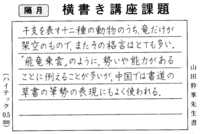 隔月
横書き講座課題
干支を表す十二種の動物のうち、竜だけが
架空のもので、またその格言はとても多い。
"飛竜乗雲"のように、勢いや能力がある
ことに例えることが多いが、中国では書道の
草書の筆勢の表現にもよく使われる。
(ハイテック0.5㎜)
山田幹峯先生書